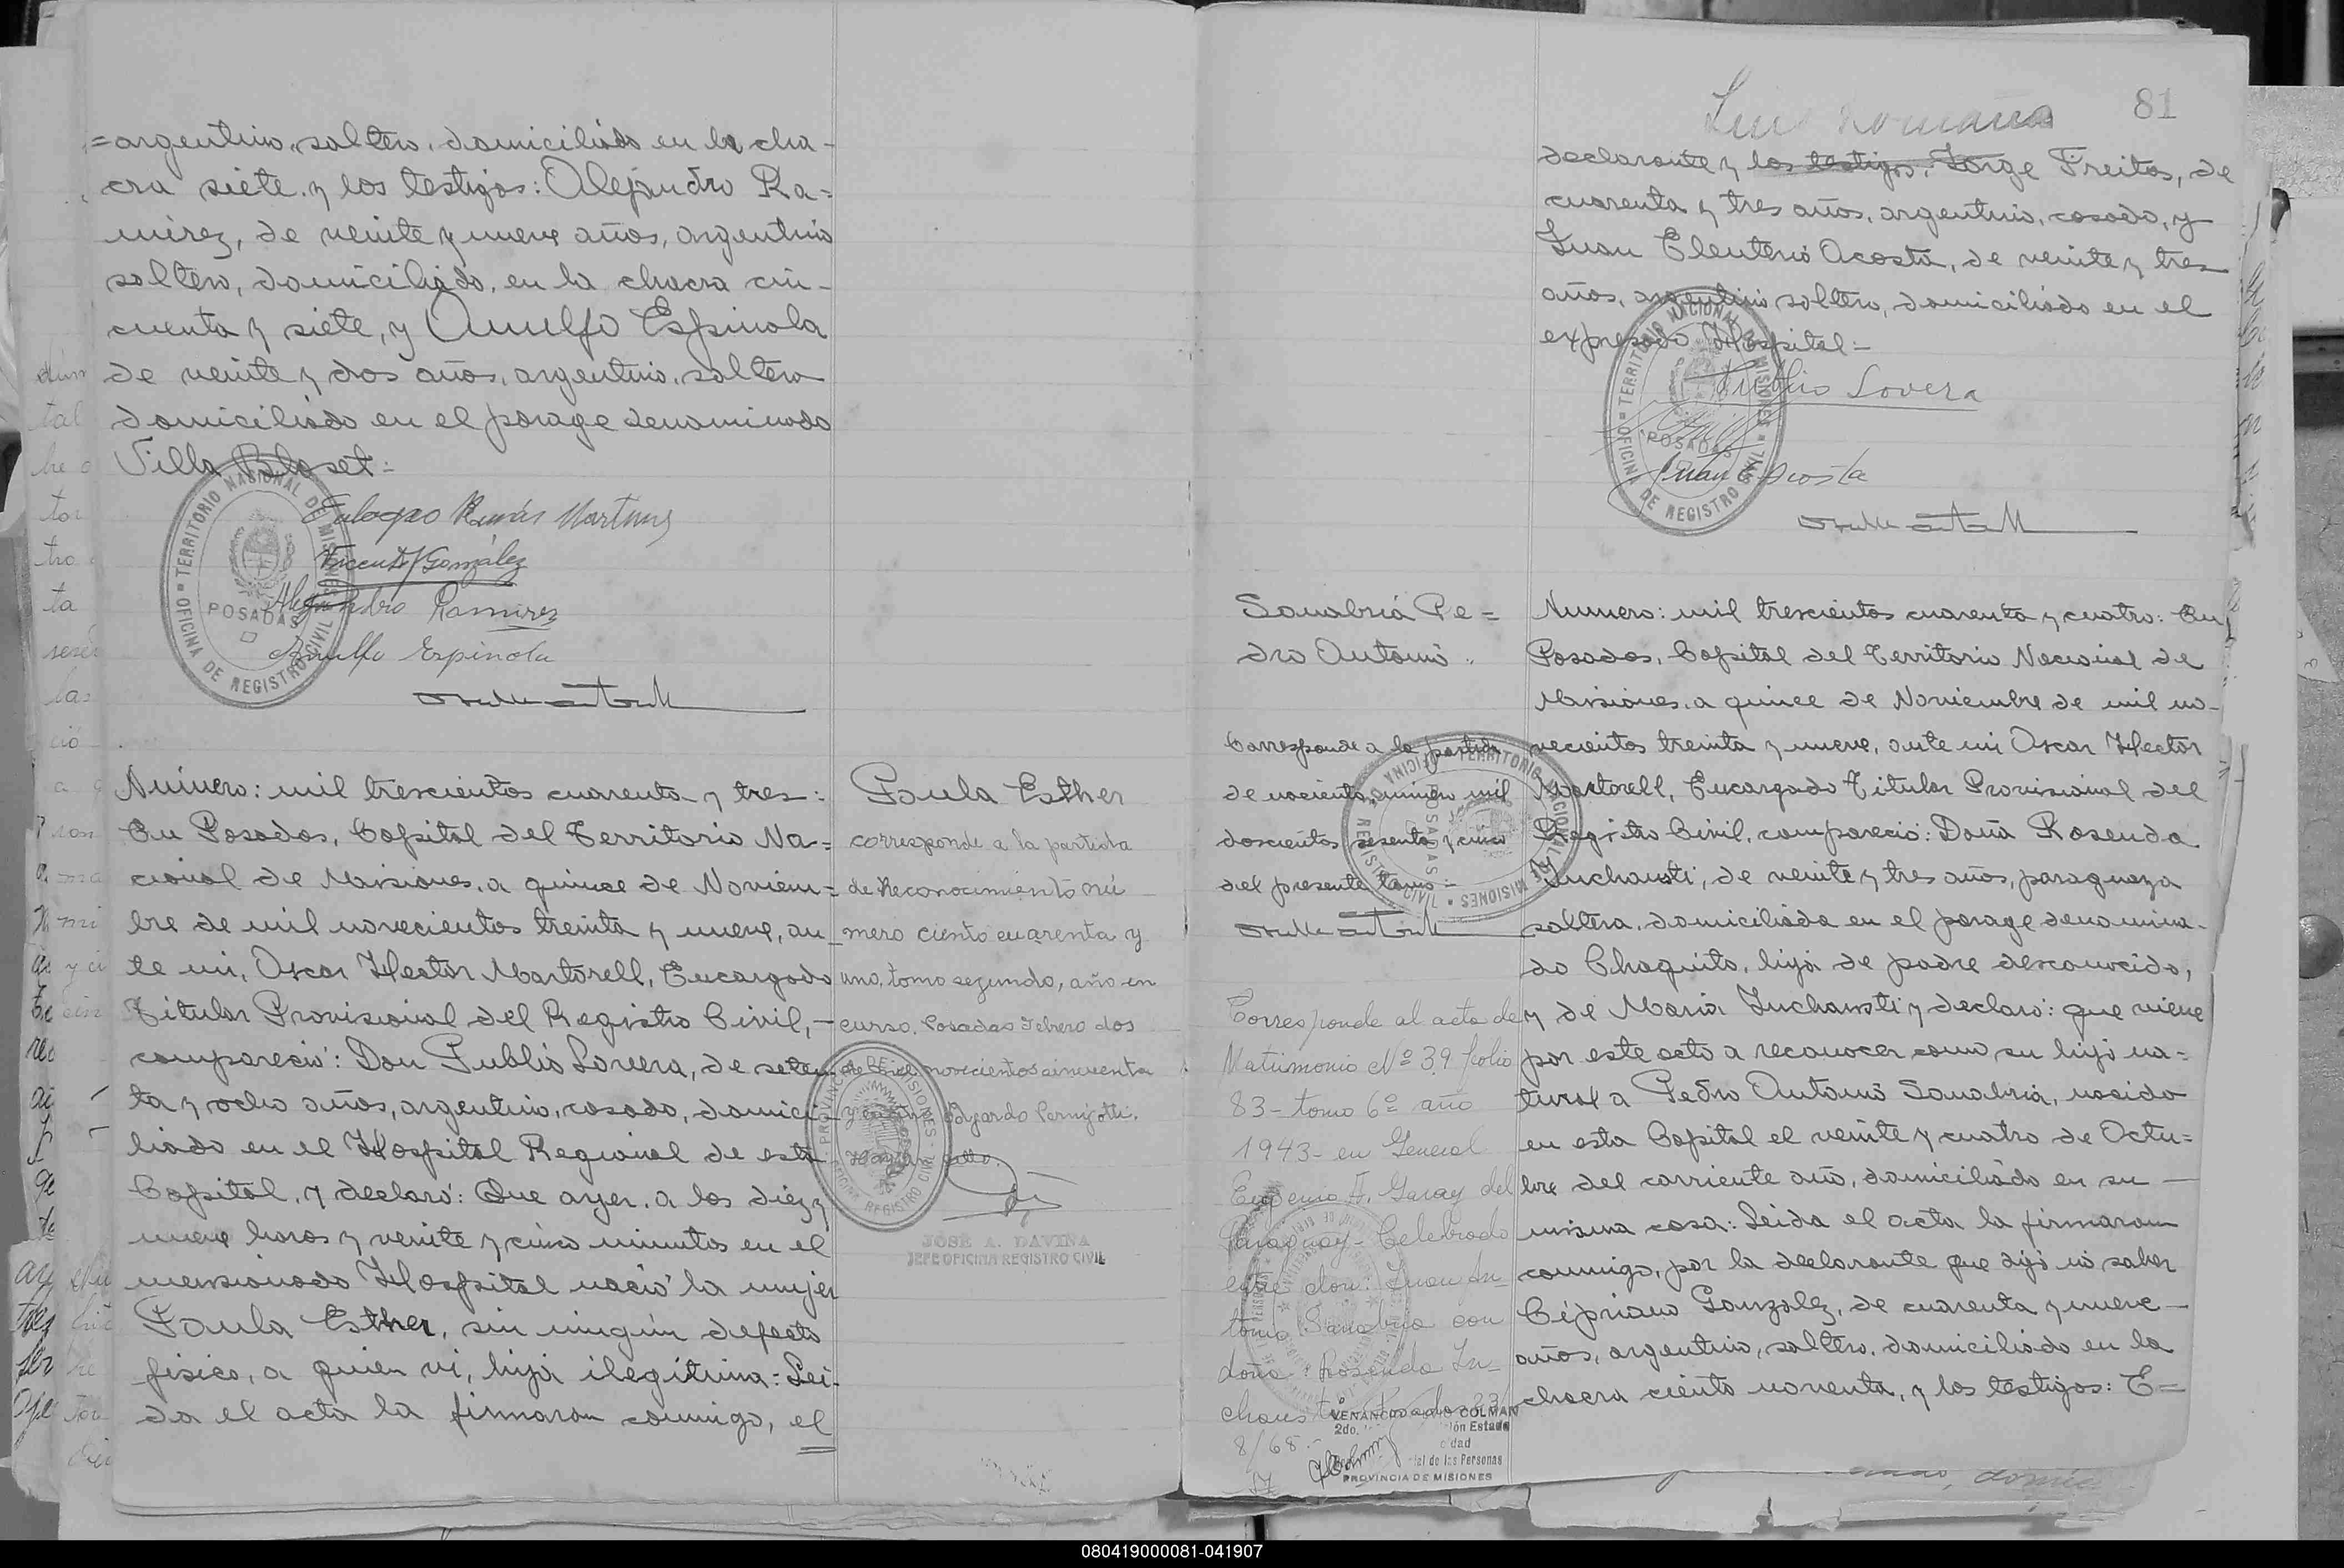 =argentino, soltero, domiciliado en la cha-
cra siete, y los testigos: Alejandro Ra=
mirez, de veinte y nueve años, argentino
soltero, domiciliado, en la chacra cin-
cuenta y siete, y Arnulfo Espinola
de veinte y dos años, argentino, soltero
domiciliado en el parage denominado
Villa Bloset:
Eulogio Martinez
Vicente González
Alejandro Ramirez
Arnulfo Espinola
TERRITORIO NACIONAL DE MISIONES
POSADAS
OFICINA DE REGISTRO CIVIL
Número: mil trescientos cuarenta y tres:
En Posadas, Capital del Territorio Na=
cional de Misiones, a quince de Noviem=
bre de mil novecientos treinta y nueve, an-
te mi, Oscar Hector Martorell, Encargado
Titular Provisional del Registro Civil,-
compareció: Don Publio Lovera, de seten-
ta y ocho años, argentino, casado, domici-
liado en el Hospital Regional de esta
Capital, y declaró: Que ayer, a las diez y
nueve horas y veinte y cinco minutos en el
mensionado Hospital nació la mujer
Paula Esther, sin ningún defecto
fisico, a quien vi, hija ilegitima: Lei-
da el acta la firmaron conmigo, el
Paula Esther
corresponde a la partida
de Reconocimiento nú
mero ciento cuarenta y
uno, tomo segundo, año en
curso. Posadas Febrero dos
de mil novecientos cincuenta
PROVINCIA DE MISIONES
OFICINA REGISTRO CIVIL
JOSÉ A. DAVIÑA
JEFE OFICINA REGISTRO CIVIL
81
declarante y los testigos, Jorge Freitas, de
cuarenta y tres años, argentino, casado, y
Juan Eleuterio Acosta, de veinte y tres
años, argentino soltero, domiciliado en el
expresado Hospital=
Publio Lovera
Juan E Acosta
TERRITORIO NACIONAL DE MISIONES
POSADAS
OFICINA DE REGISTRO CIVIL
Sanabria Pe=
dro Antonio
Corresponde a la partida
de nacimiento, número mil
doscientos sesenta y cinco
del presente tomo:
Corresponde al acta de
Matrimonio Nº 39 folio
83- tomo 6º año
1943- en General
Eugenio A. Garay del
Paraguay- Celebrado
entre don: Juan An-
tonio Sanabria con
doña: Rosenda In-
chausti Posadas 23/
8/68.-
VENANCIO COLMAN
2do.
PROVINCIA DE MISIONES
Numero: mil trescientos cuarenta y cuatro: En
Posadas, Capital del Territorio Nacional de
Misiones, a quince de Noviembre de mil no-
vecientos treinta y nueve, ante mi Oscar Hector
Martorell, Encargado Titular Provisional del
Registro Civil, compareció: Doña Rosenda
Inchausti, de veinte y tres años, paraguaya
soltera, domiciliada en el parage denomina-
do Chaquito, hija de padre desconocido,
y de Maria Inchausti y declaró: que viene
por este acto a reconocer como su hijo na=
tural a Pedro Antonio Sanabria, nacido
en esta Capital el veinte y cuatro de Octu=
bre del corriente año, domiciliado en su -
misma casa: Leida el acta la firmaron
conmigo, por la declarante que dijo no saber
Cipriano Gonzalez, de cuarenta y nueve-
años, argentino, soltero, domiciliado en la
chacra ciento noventa, y los testigos: E=
080419000081-041907